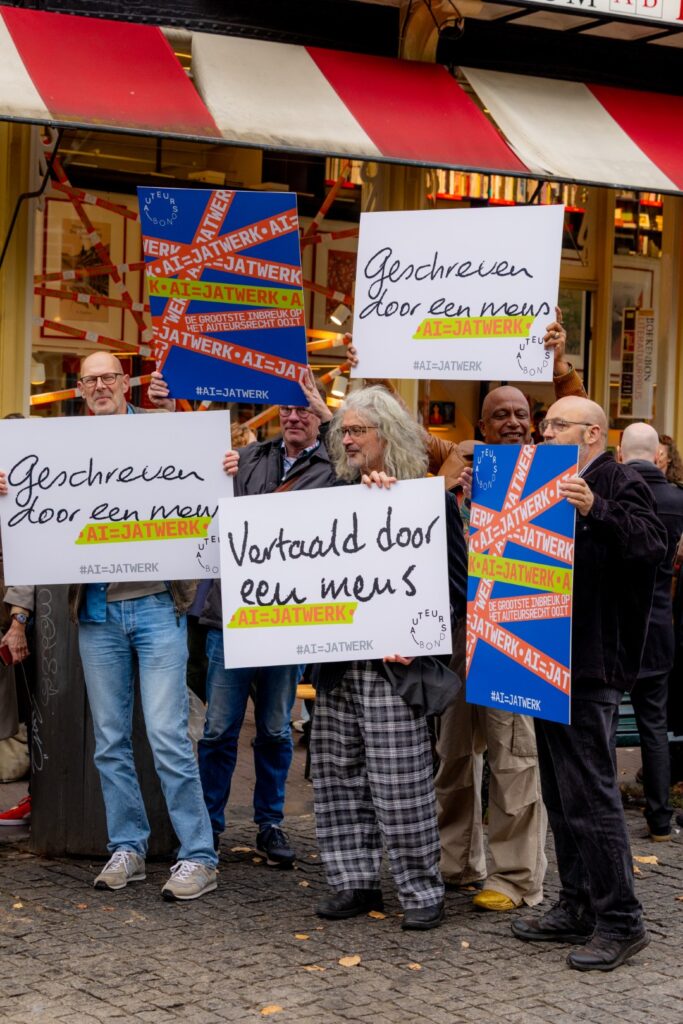 AUTEURSBOND
AI=JATWERK
AI=JATWERK
K•AI=JATWERK•A
DE GROOTSTE INBREUK OP
HET AUTEURSRECHT OOIT
AI=JATWERK
#AI=JATWERK
Geschreven
door een mens
AI=JATWERK
AUTEURSBOND
#AI=JATWERK
Geschreven
door een mens
AI=JATWERK
AUTEURSBOND
#AI=JATWERK
Vertaald door
een mens
AI=JATWERK
AUTEURSBOND
#AI=JATWERK
AUTEURSBOND
AI=JATWERK
K•AI=JATWERK•A
DE GROOTSTE INBREUK OP
HET AUTEURSRECHT OOIT
AI=JATWERK
#AI=JATWERK
BOEKENBON